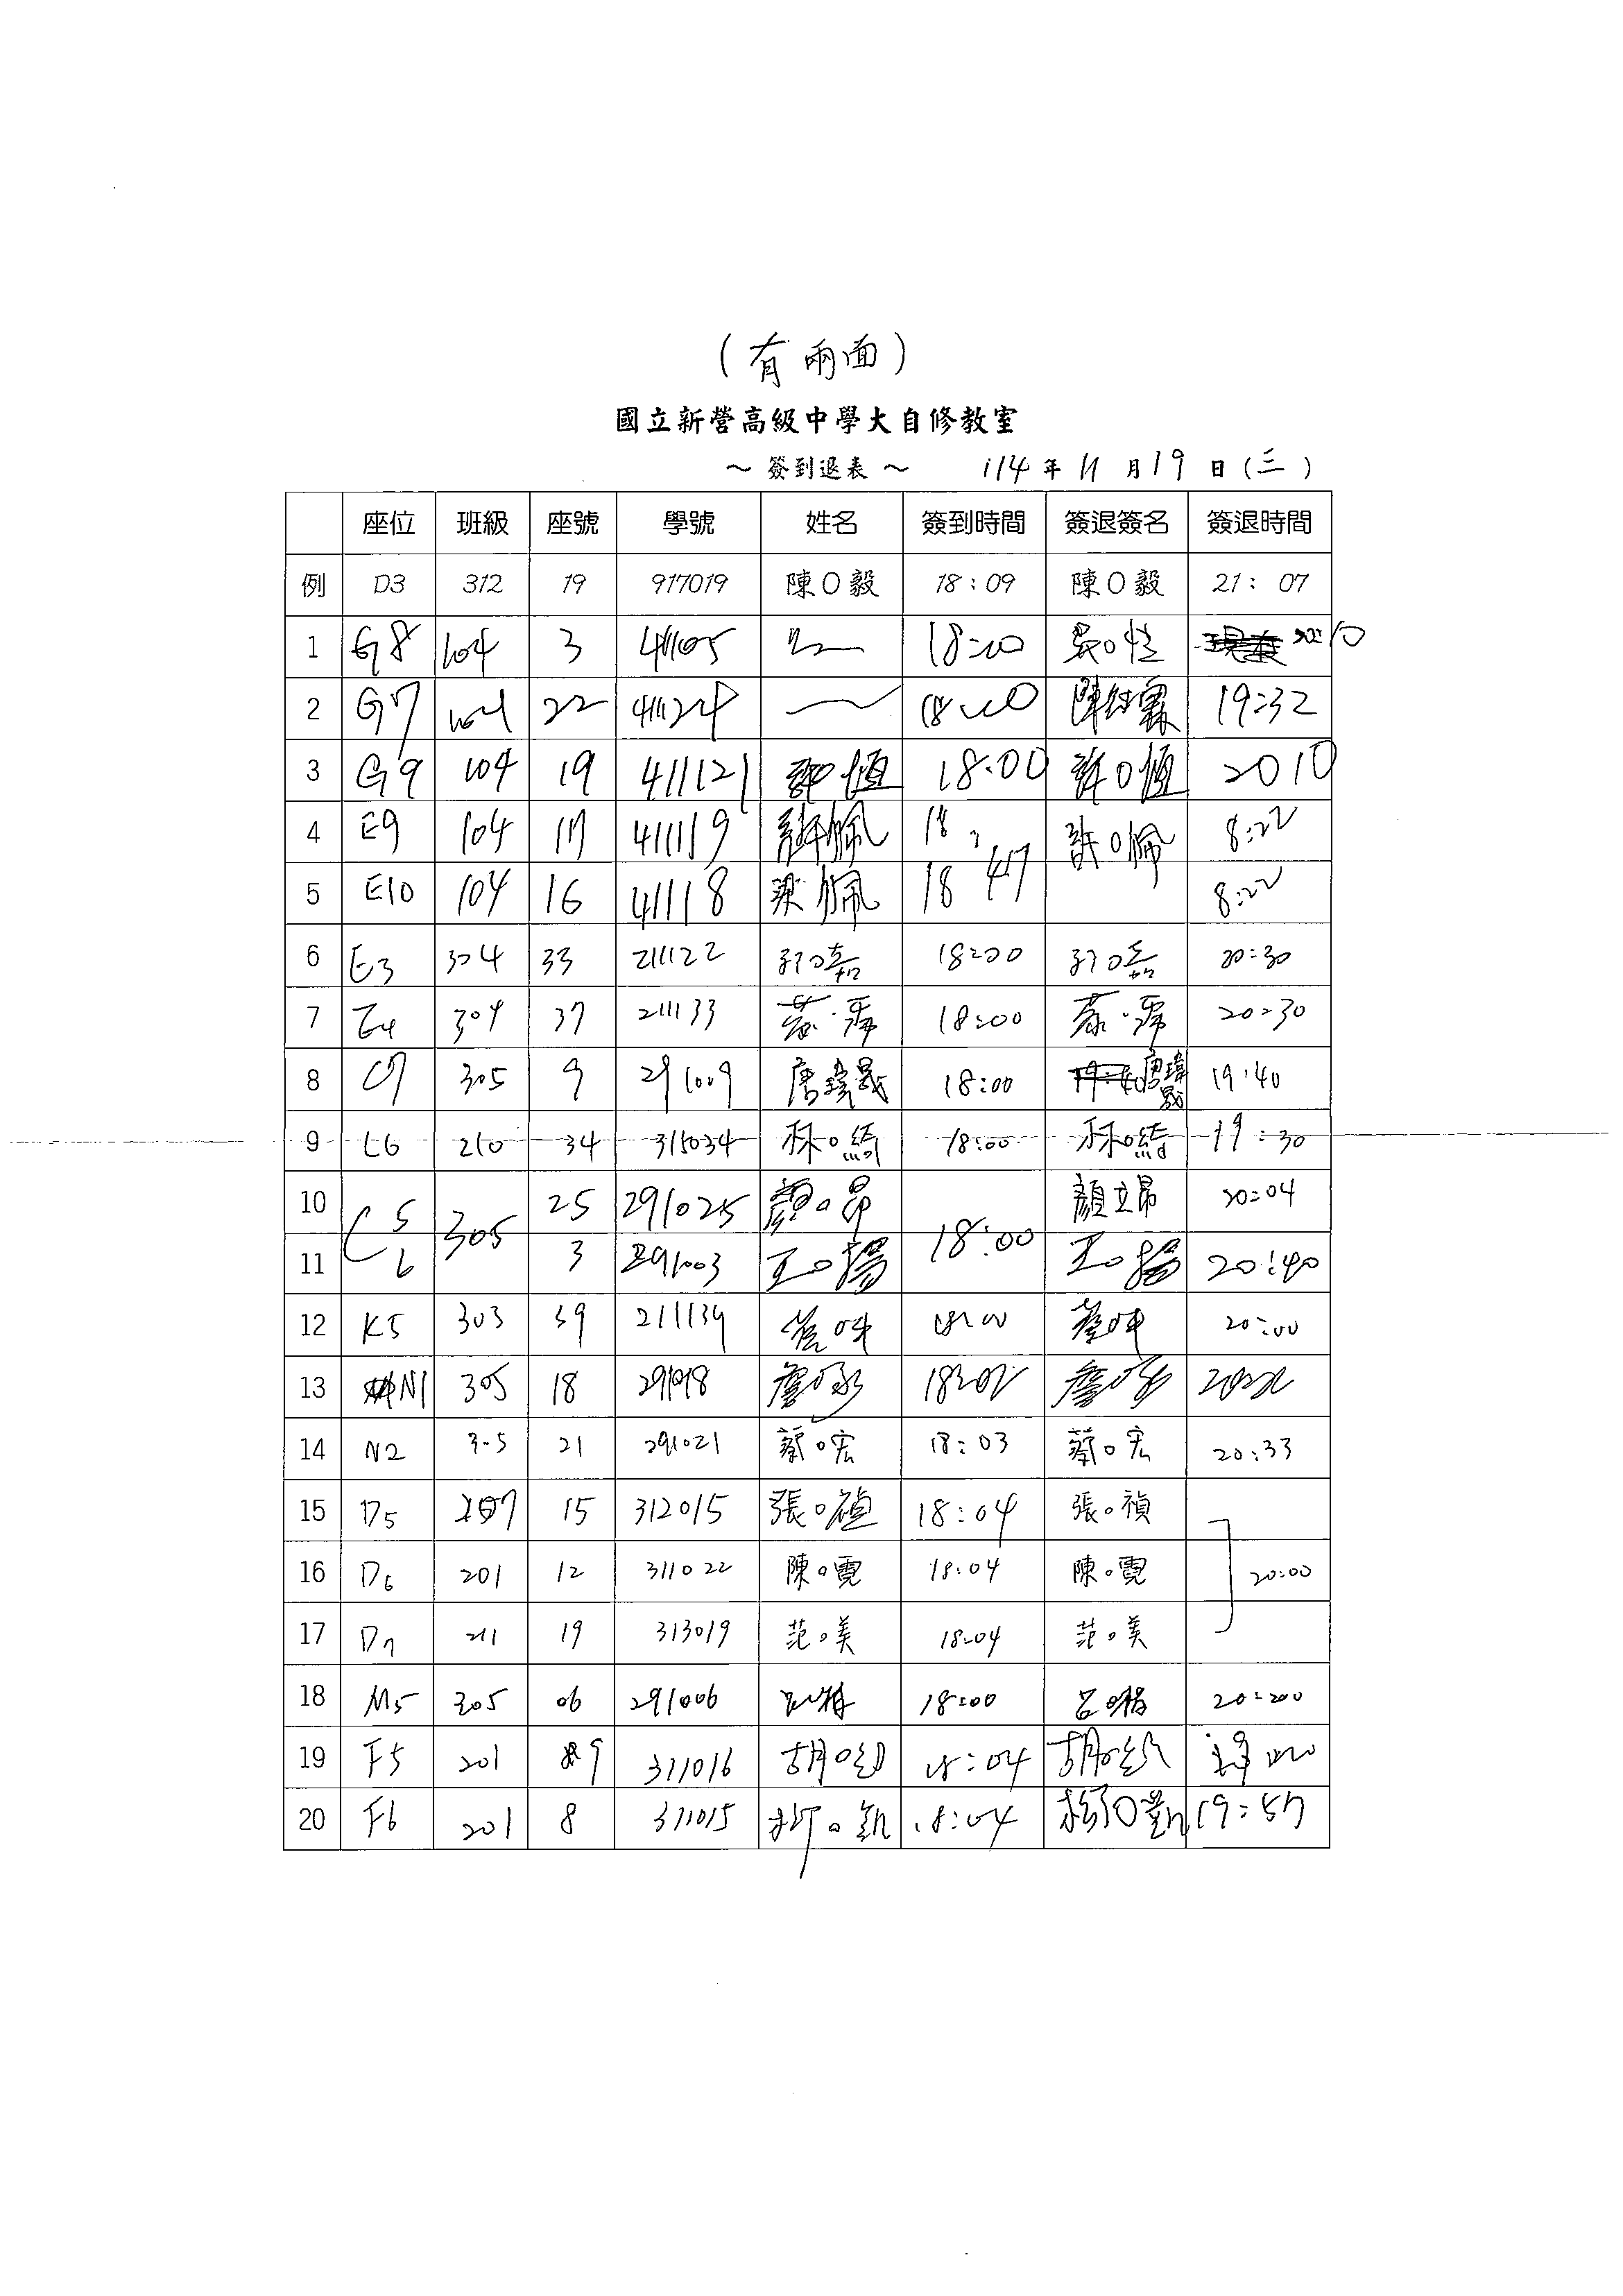 (有兩面)
國立新營高級中學大自修教室
～ 簽到退表 ～ 114 年 11 月 19 日 (三)
座位 班級 座號 學號 姓名 簽到時間 簽退簽名 簽退時間
例 D3 312 19 917019 陳O毅 18:09 陳O毅 21:07
1 G8 104 3 411105 18:00 吳O性 20:10
2 G7 104 22 411124 18:00 19:32
3 G9 104 19 411121 許O恆 18:00 許O恆 2010
4 E9 104 17 411119 18: 8:22
5 E10 104 16 41118 18 47 8:22
6 E3 304 33 211122 18:00 20:30
7 E4 304 37 211133 18:00 20:30
8 C7 305 9 291009 唐瑋晟 18:00 唐瑋晟 19:40
9 C6 210 34 315034 林O綺 18:00 林O綺 19:30
10 C5 305 25 291025 顏O昂 18:00 顏立昂 20:04
11 6 3 291003 王O揚 王O揚 20:40
12 K5 303 39 211139 18:00 20:00
13 N1 305 18 291018 18:02
14 N2 305 21 291021 蔡O宏 18:03 蔡O宏 20:33
15 D5 207 15 312015 張O禎 18:04 張O禎
16 D6 201 12 311022 陳O霓 18:04 陳O霓 20:00
17 D7 211 19 313019 范O美 18:04 范O美
18 M5 305 06 291006 18:00 20:00
19 F5 201 9 311016 胡O 18:04 胡O
20 F6 201 8 311015 18:04 19:57